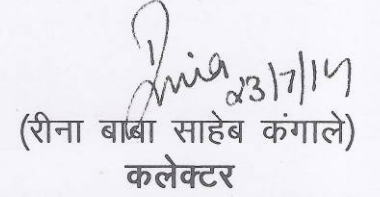 23/7/14
(रीना बाबा साहेब कंगाले)
कलेक्टर